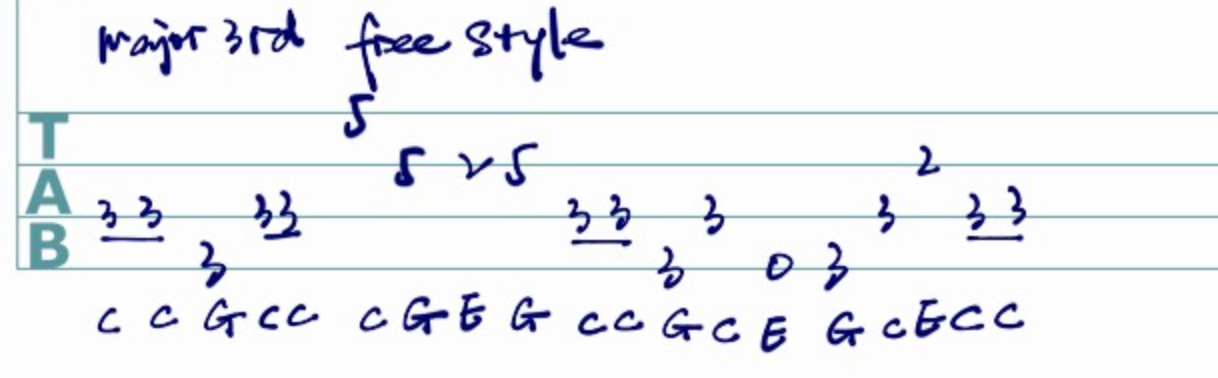 major 3rd free style
T
A
B
5
5 2 5 2
3 3 3 3 3 3 3 3 3 3
3 3 0 3
C C G C C C G E G C C G C E G C E C C